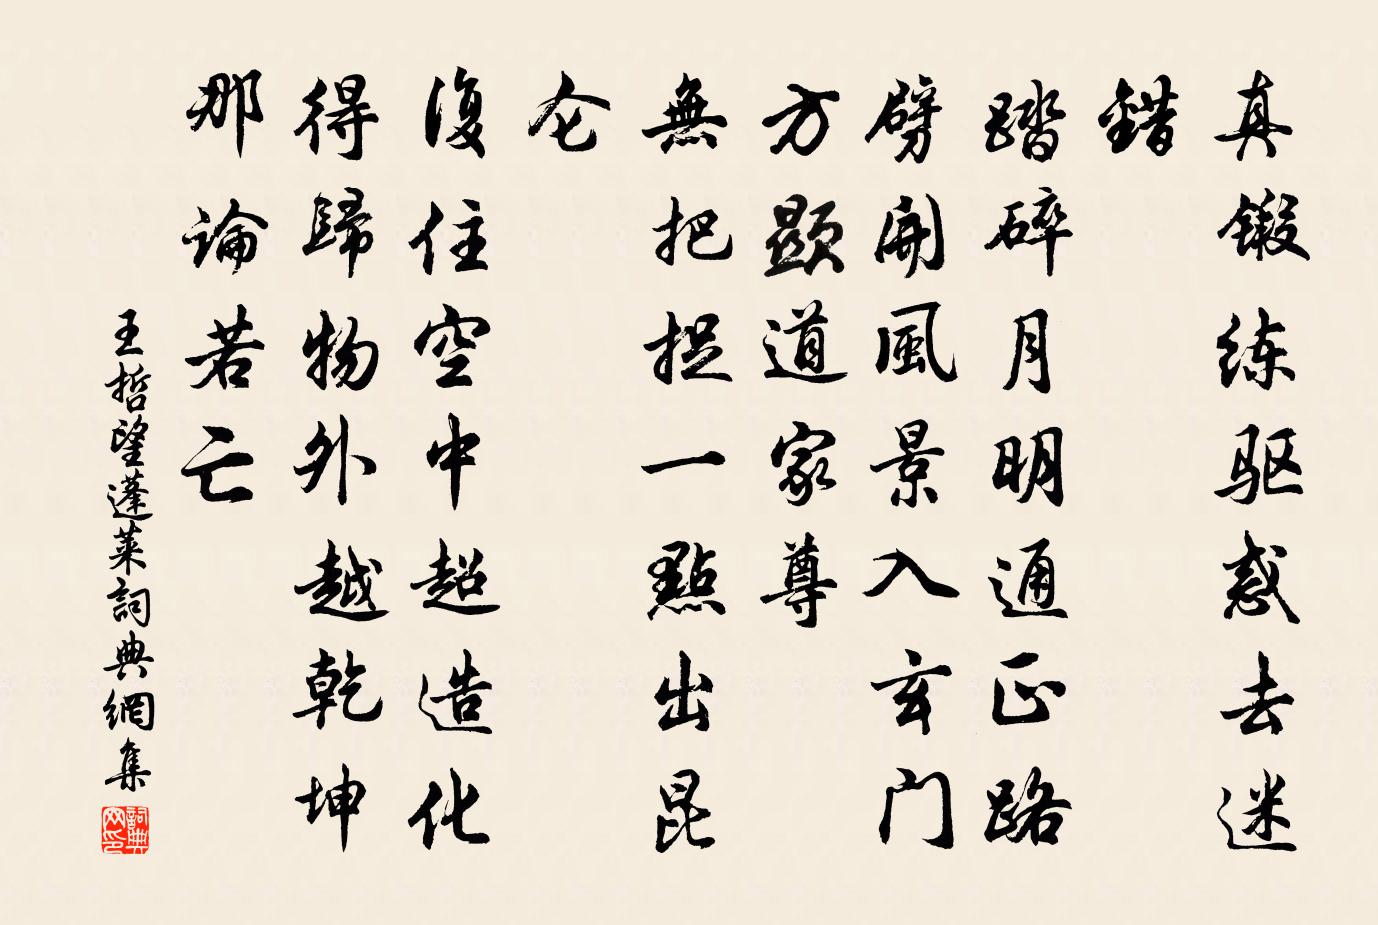 真鍛练驱惑去迷
錯
踏碎月明通正路
劈開風景入玄门
方顯道家尊
無把捉一點出昆
仑
復住空中超造化
得歸物外越乾坤
那论若亡
王哲望蓬莱詞典網集
詞典网印